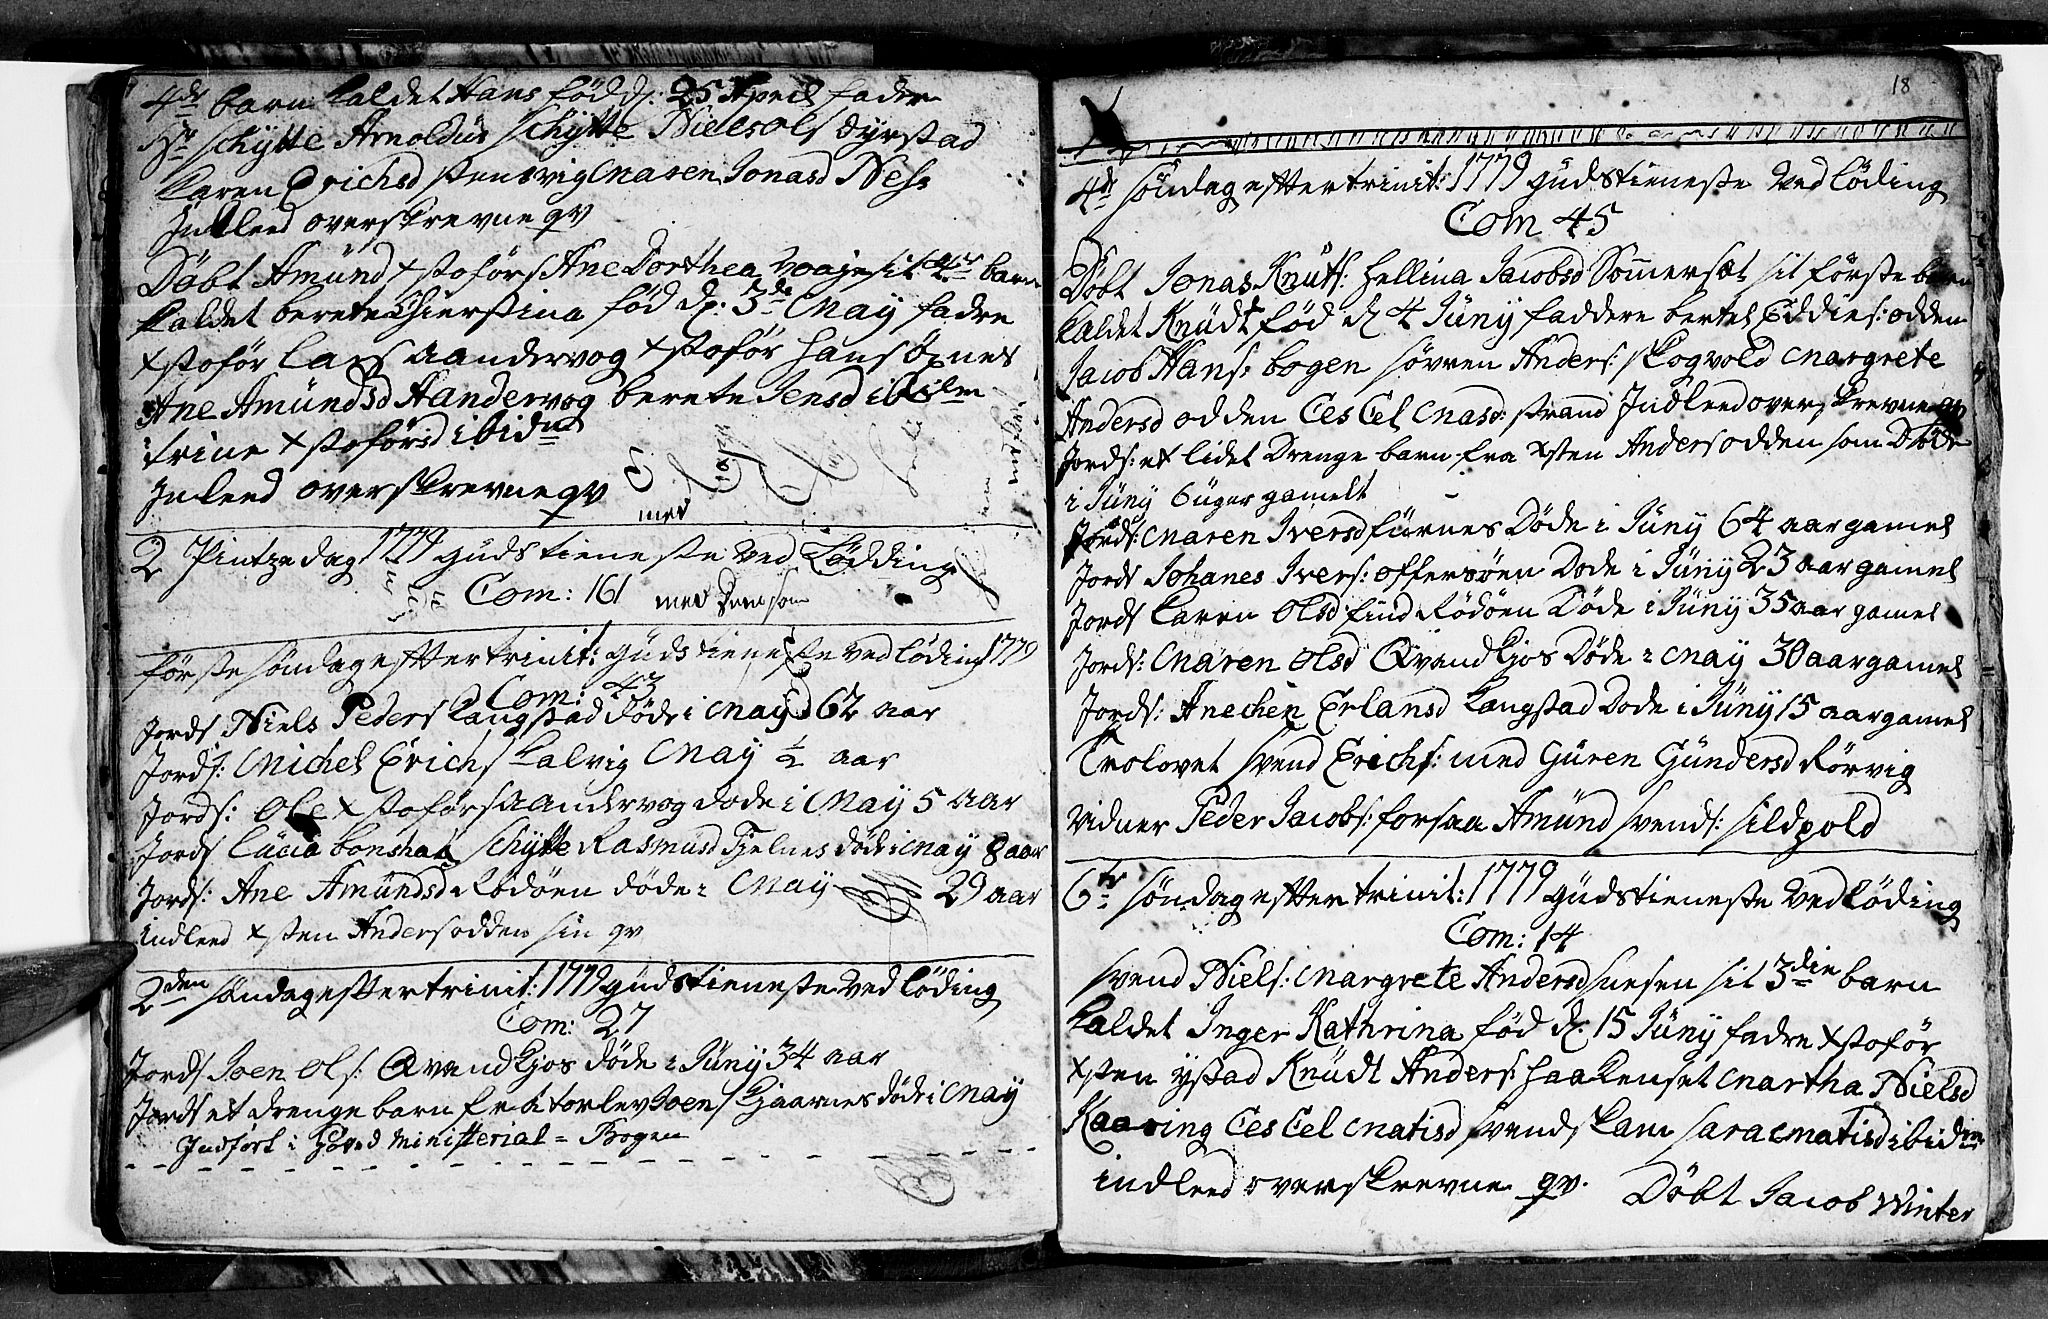 4de barn kaldet Hans fød d: 25 April fadre
Hr Schytte Arnoldus Schytte Niels Ols Dyrstad
Karen Erichsd Stensvig Maren Jonasd Ness
Indleed overskrevne qv
Døbt Amünd Xstoførs Ane Dorthea sit 4de barn
kaldet berete Chierstina fød d: 3de May fadre
Xstofør Lars aandervog Xstofør Hans øxnes
Ane Amündsd Aandervog berete Jensd ibidem
trine Xstoførsd ibidm
Inleed overskrevne qv
med
2 Pintzedag 1779 gudstieneste ved Lødding
Com: 161
med Dem som
første søndag effter trinit: gudstieneste ved løding 1779
Com: 43
Jords Niels Peders Langstad døde i May 62 aar
Jords: Michel Erichs Kalvig May ½ aar
Jords: Ole Xstoførs aandervog døde i May 5 aar
Jords Lucia bonsha Schytte Rasmusd Fjelnes døde i May 8 aar
Jords: Ane Amündsd Rødøen døde i May 29 aar
indleed Xsten Anders odden sin qv
2den søndag effter trinit: 1779 gudstieneste ved løding
Com: 27
Jords Joen Ols: Qvandkjos døde i Jüny 34 aar
Jords et drenge barn fra torlev Joens Kjaarnes døde i May
Indført i Hoved Ministerial = Bogen
18
4de søndag effter trinit: 1779 gudstieneste ved løding
Com 45
Døbt Jonas Knüts: Hellina Jacobsd Sommersæt sit første barn
kaldet Knüdt fød d 4 Jüny faddere bertel Eddies: odden
Jacob Hans: bogen Søvren Anders: Skogvold Margrete
Andersd odden Ceslel Masd: strand Indleed overskrevne qv
Jords: et lidet Drenge barn fra Xsten Anders odden som Døde
i Jüny 6 uger gamelt
Jords: Maren Iversd fürnes Døde i Jüny 64 aar gamel
Jords Johanes Ivers: offersøen Døde i Jüny 23 aar gamel
Jords Karen Olsd find Rødøen Døde i Jüny 35 aar gamel
Jords: Maren Olsd Qvandkjos Døde i May 30 aar gamel
Jords: Anechen Erlansd Langstad Døde i Jüny 15 aar gamel
Trolovet Svend Erichs: med Güren Gündersd Rørvig
Vidner Peder Jacobs: forsaa Amünd Svends: Sildpold
6te søndag effter trinit: 1779 gudstieneste ved løding
Com: 14
Svend Niels: Margrete Andersd sit 3die barn
kaldet Inger Kathrina fød d: 15 Jüny fadre Xstofør
Xsten ystad Knüdt Anders: Haakenset Martha Nielsd
Kaaring Ceslel Matisd Svends Kam Sara Matisd ibidem
indleed overskrevne qv. Døbt Jacob Winter